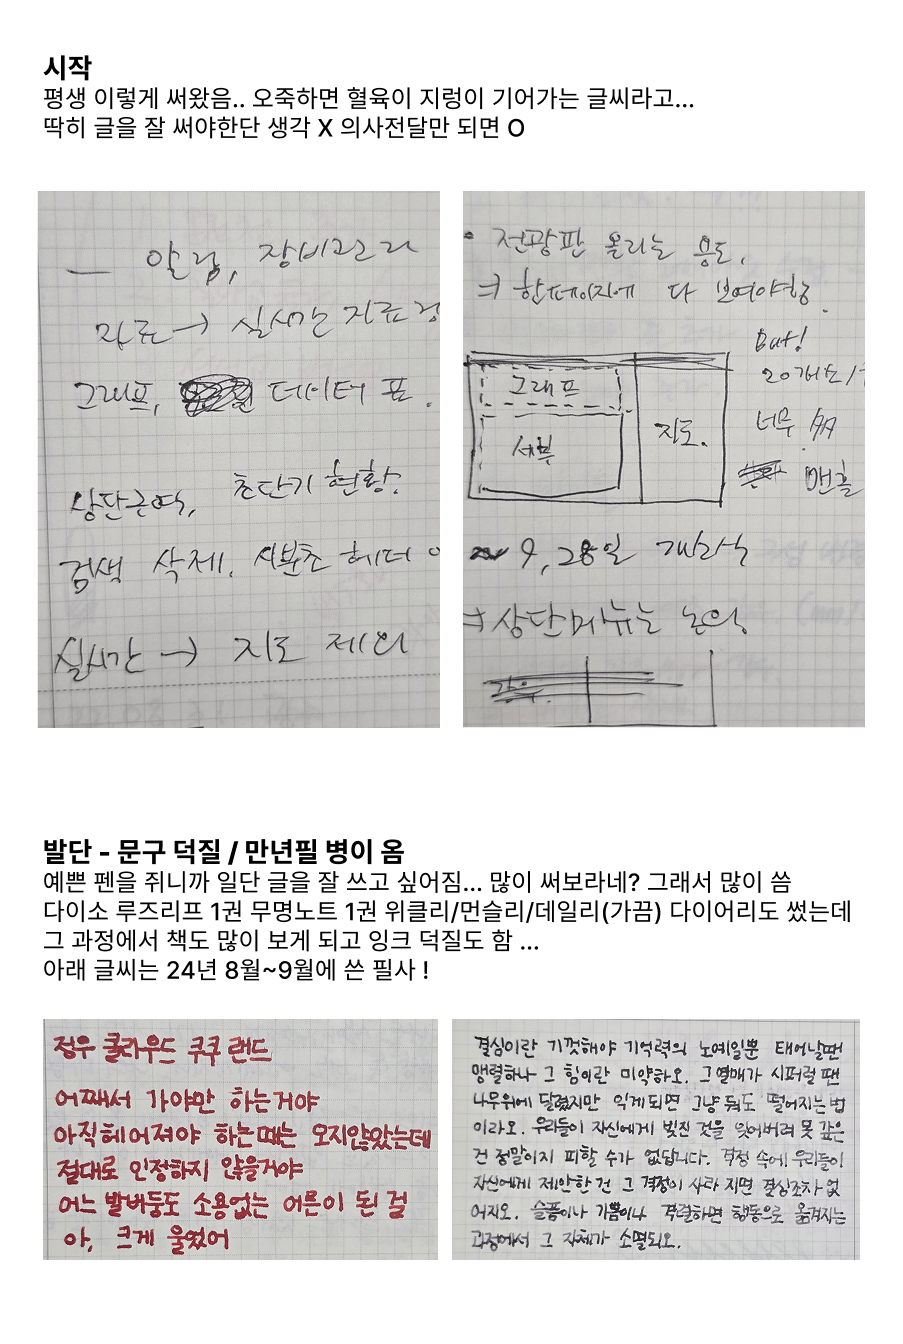 시작
평생 이렇게 써왔음.. 오죽하면 혈육이 지렁이 기어가는 글씨라고...
딱히 글을 잘 써야한단 생각 X 의사전달만 되면 O
알림, 장비관리
자료 → 실시간 자료
그래프, 데이터 표.
상단근역, 초단기 현황.
검색 삭제. 시분초 헤더
실시간 → 지도 제외
• 전광판 올리는 용도.
⇒ 한페이지에 다 보여야함.
But!
20개소
그래프
너무 多
지도.
세부
맨홀
9, 28일 개소식
⇒ 상단메뉴는 논의
발단 - 문구 덕질 / 만년필 병이 옴
예쁜 펜을 쥐니까 일단 글을 잘 쓰고 싶어짐... 많이 써보라네? 그래서 많이 씀
다이소 루즈리프 1권 무명노트 1권 위클리/먼슬리/데일리(가끔) 다이어리도 썼는데
그 과정에서 책도 많이 보게 되고 잉크 덕질도 함 ...
아래 글씨는 24년 8월~9월에 쓴 필사 !
정우 클라우드 쿠쿠 랜드
어째서 가야만 하는거야
아직 헤어져야 하는 때는 오지않았는데
절대로 인정하지 않을거야
어느 발버둥도 소용없는 어른이 된 걸
아, 크게 울었어
결심이란 기껏해야 기억력의 노예일뿐 태어날땐
맹렬하나 그 힘이란 미약하오. 그 열매가 시퍼럴 땐
나무위에 달렸지만 익게되면 그냥 둬도 떨어지는 법
이라오. 우리들이 자신에게 빚진 것을 잊어버려 못 갚은
건 정말이지 피할 수가 없답니다. 격정 속에 우리들이
자신에게 제안한 건 그 격정이 사라 지면 결심조차 없
어지오. 슬픔이나 기쁨이나 격렬하면 행동으로 옮겨지는
과정에서 그 자체가 소멸되오.